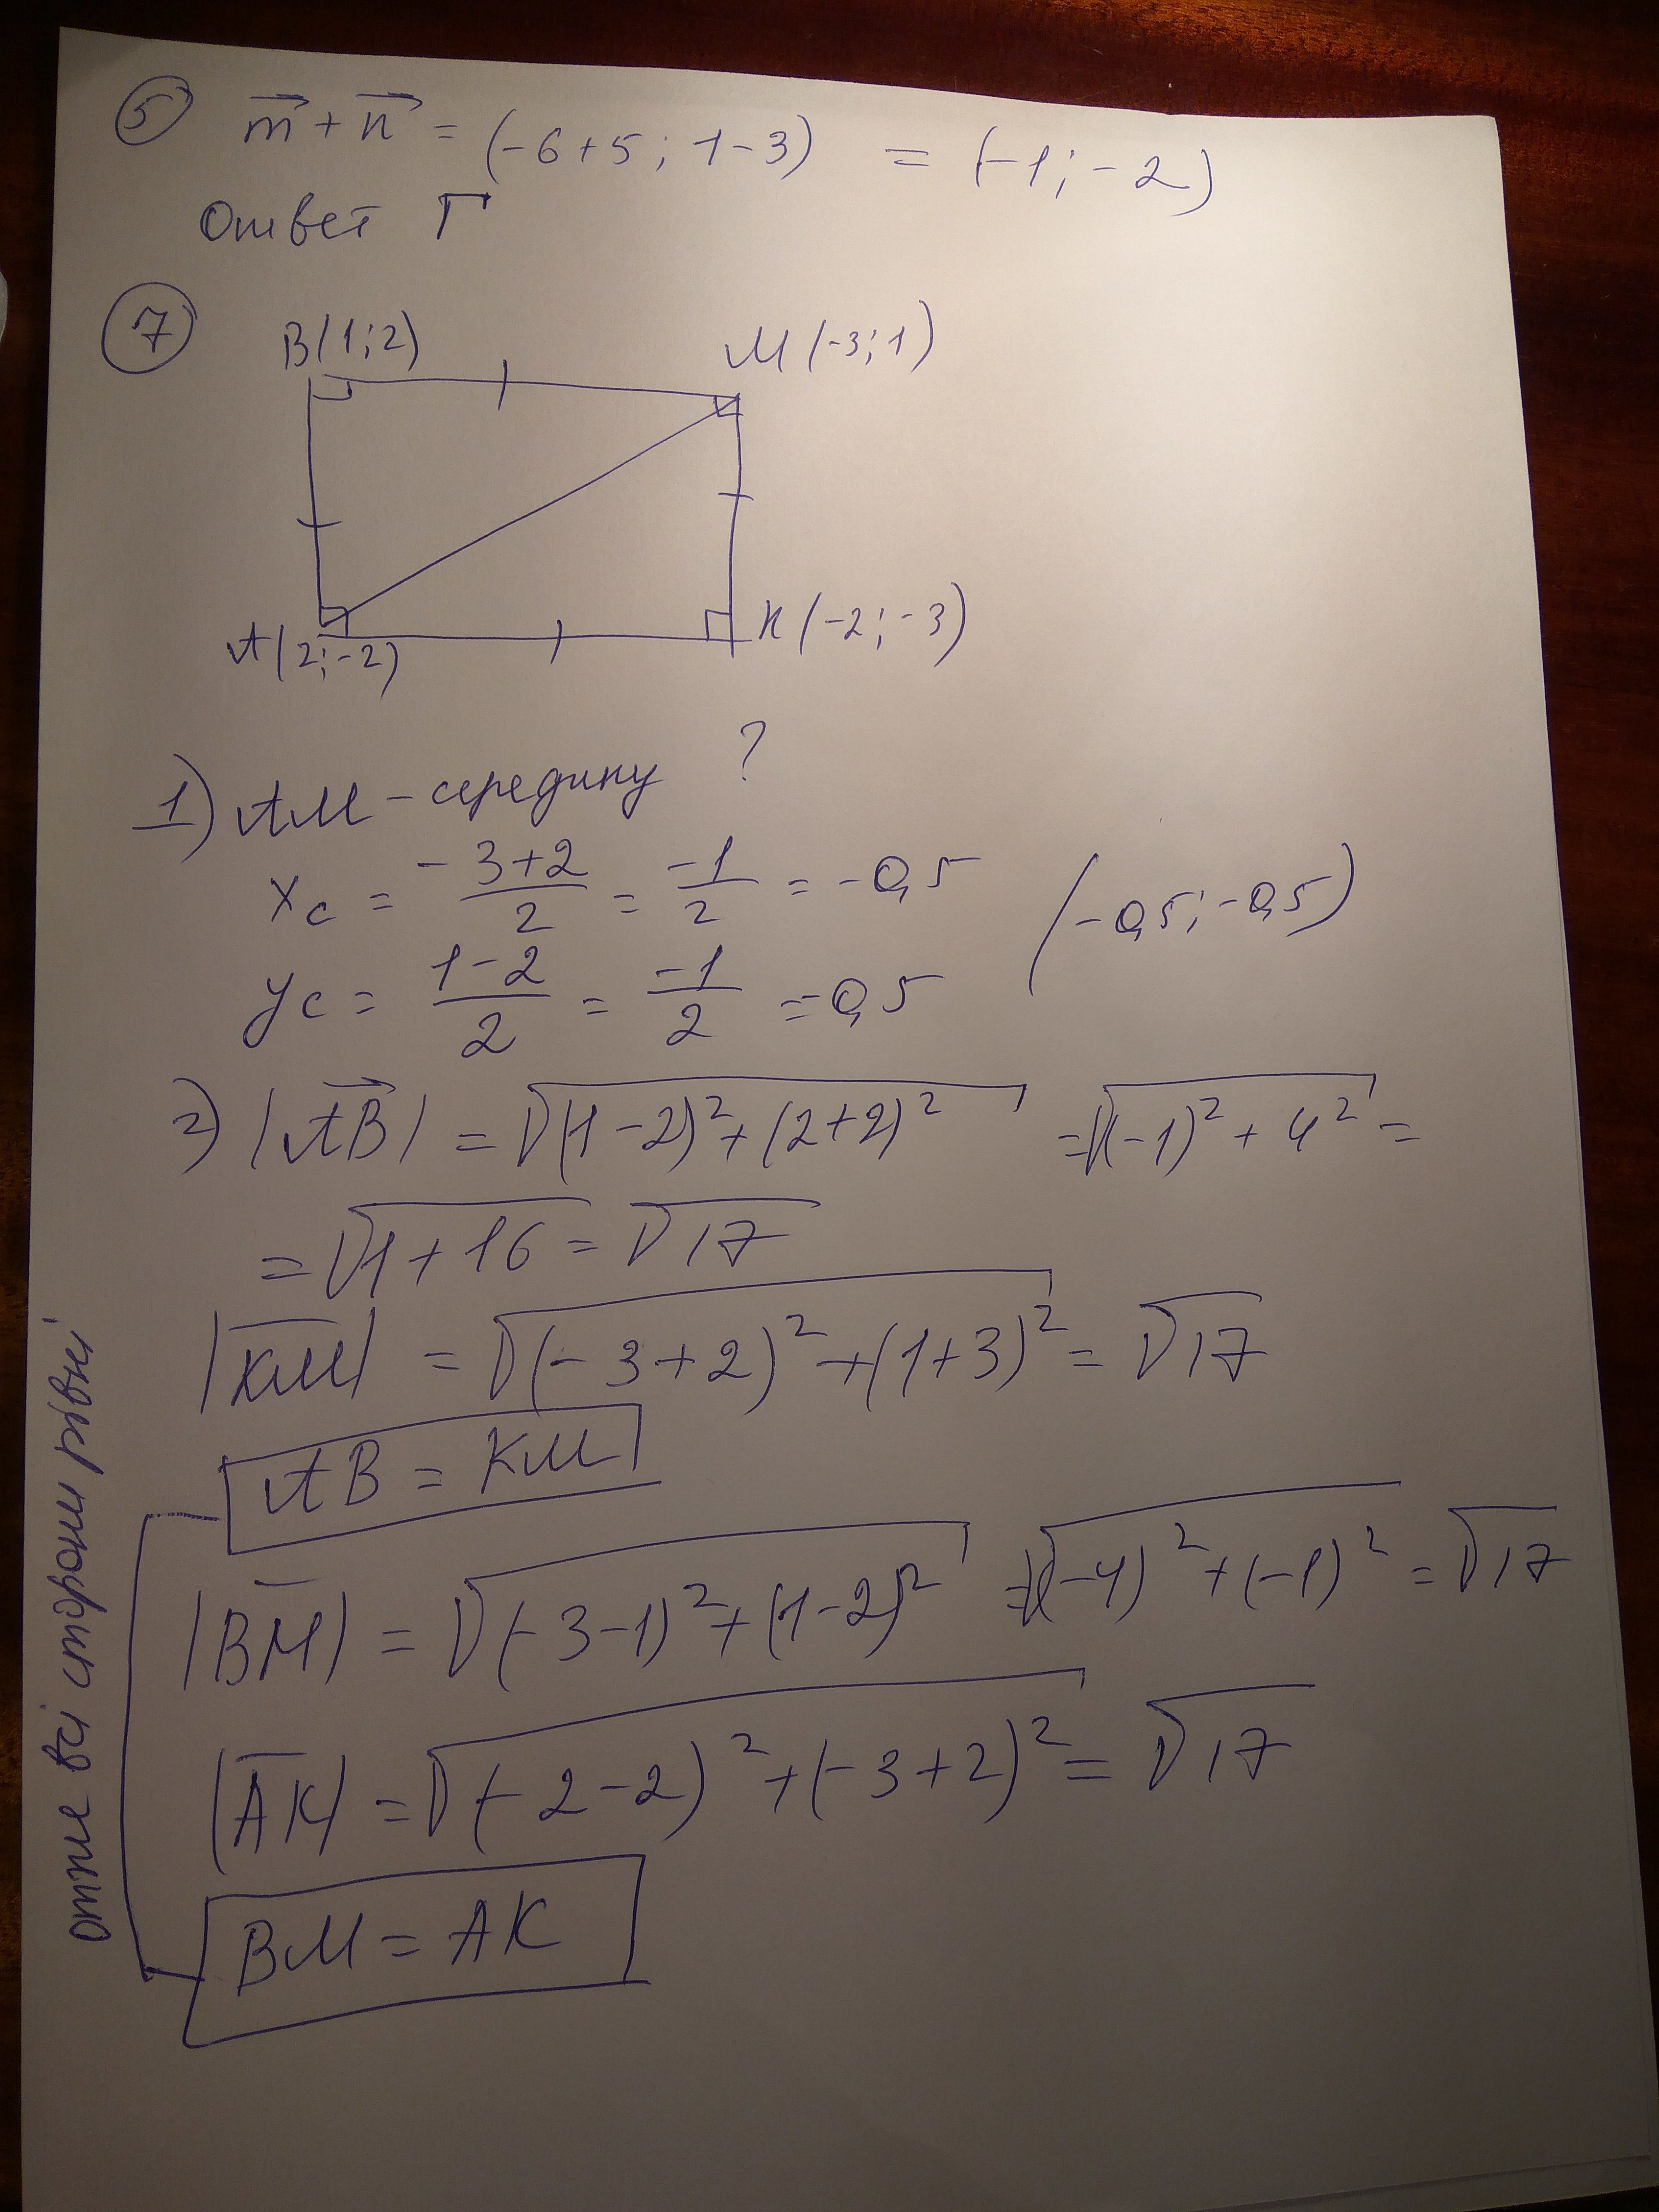 5 m + n = (-6+5; 1-3) = (-1; -2)
Ответ Г
7
B(1;2) M(-3;1)
A(2;-2) K(-2;-3)
1) AM - середину ?
xc = -3+2/2 = -1/2 = -0,5 (-0,5; -0,5)
yc = 1-2/2 = -1/2 = -0,5
2) |AB| = √(1-2)²+(2+2)² = √(-1)²+4² =
= √1+16 = √17
|KM| = √(-3+2)²+(1+3)² = √17
AB = KM
|BM| = √(-3-1)²+(1-2)² = √(-4)²+(-1)² = √17
|AK| = √(-2-2)²+(-3+2)² = √17
BM = AK
отже всі сторони рівні